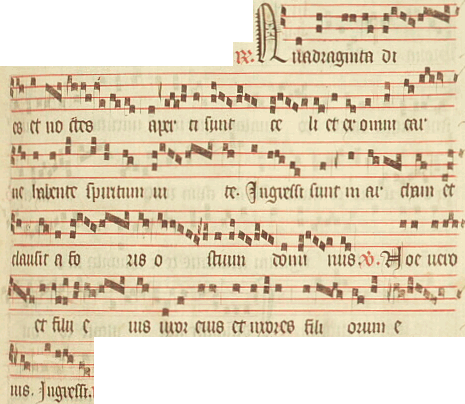 R. Quadraginta di
es et no ctes aper ti sunt ce li et ex omni car
ne habente spiritum vi te. Ingressi sunt in ar cham et
clausit a fo ris o stium domi nus V. Noe vero
et filii e ius uxor eius et uxores fili orum e
ius. Ingressi.